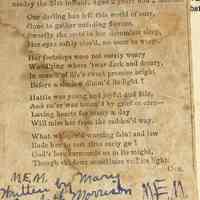 nesday the 21st instant, aged 5 years and 2
Our darling has left this world of care,
Gone to gather unfading flowers,
Sweetly she rests in her slumbers
Her eyes softly clos'd, no more to weep.
Her footsteps were not surely weary
Wand'ring where 'twas dark and dreary,
In search of life's sweet promise bright
Before a shadow dimm'd its light?
Hattie was young and joyful and fair,
And ne'er was bound by grief or care—
Loving hearts for many a day
Will miss her from the rubber'd way.
What whisper'd warning fatal and low
Bade her to rest thus early go?
God's love surrounds us in its might,
Though shadows sometimes veil its light.
M.E.M.
Written by Mary
Morrison M.E.M.